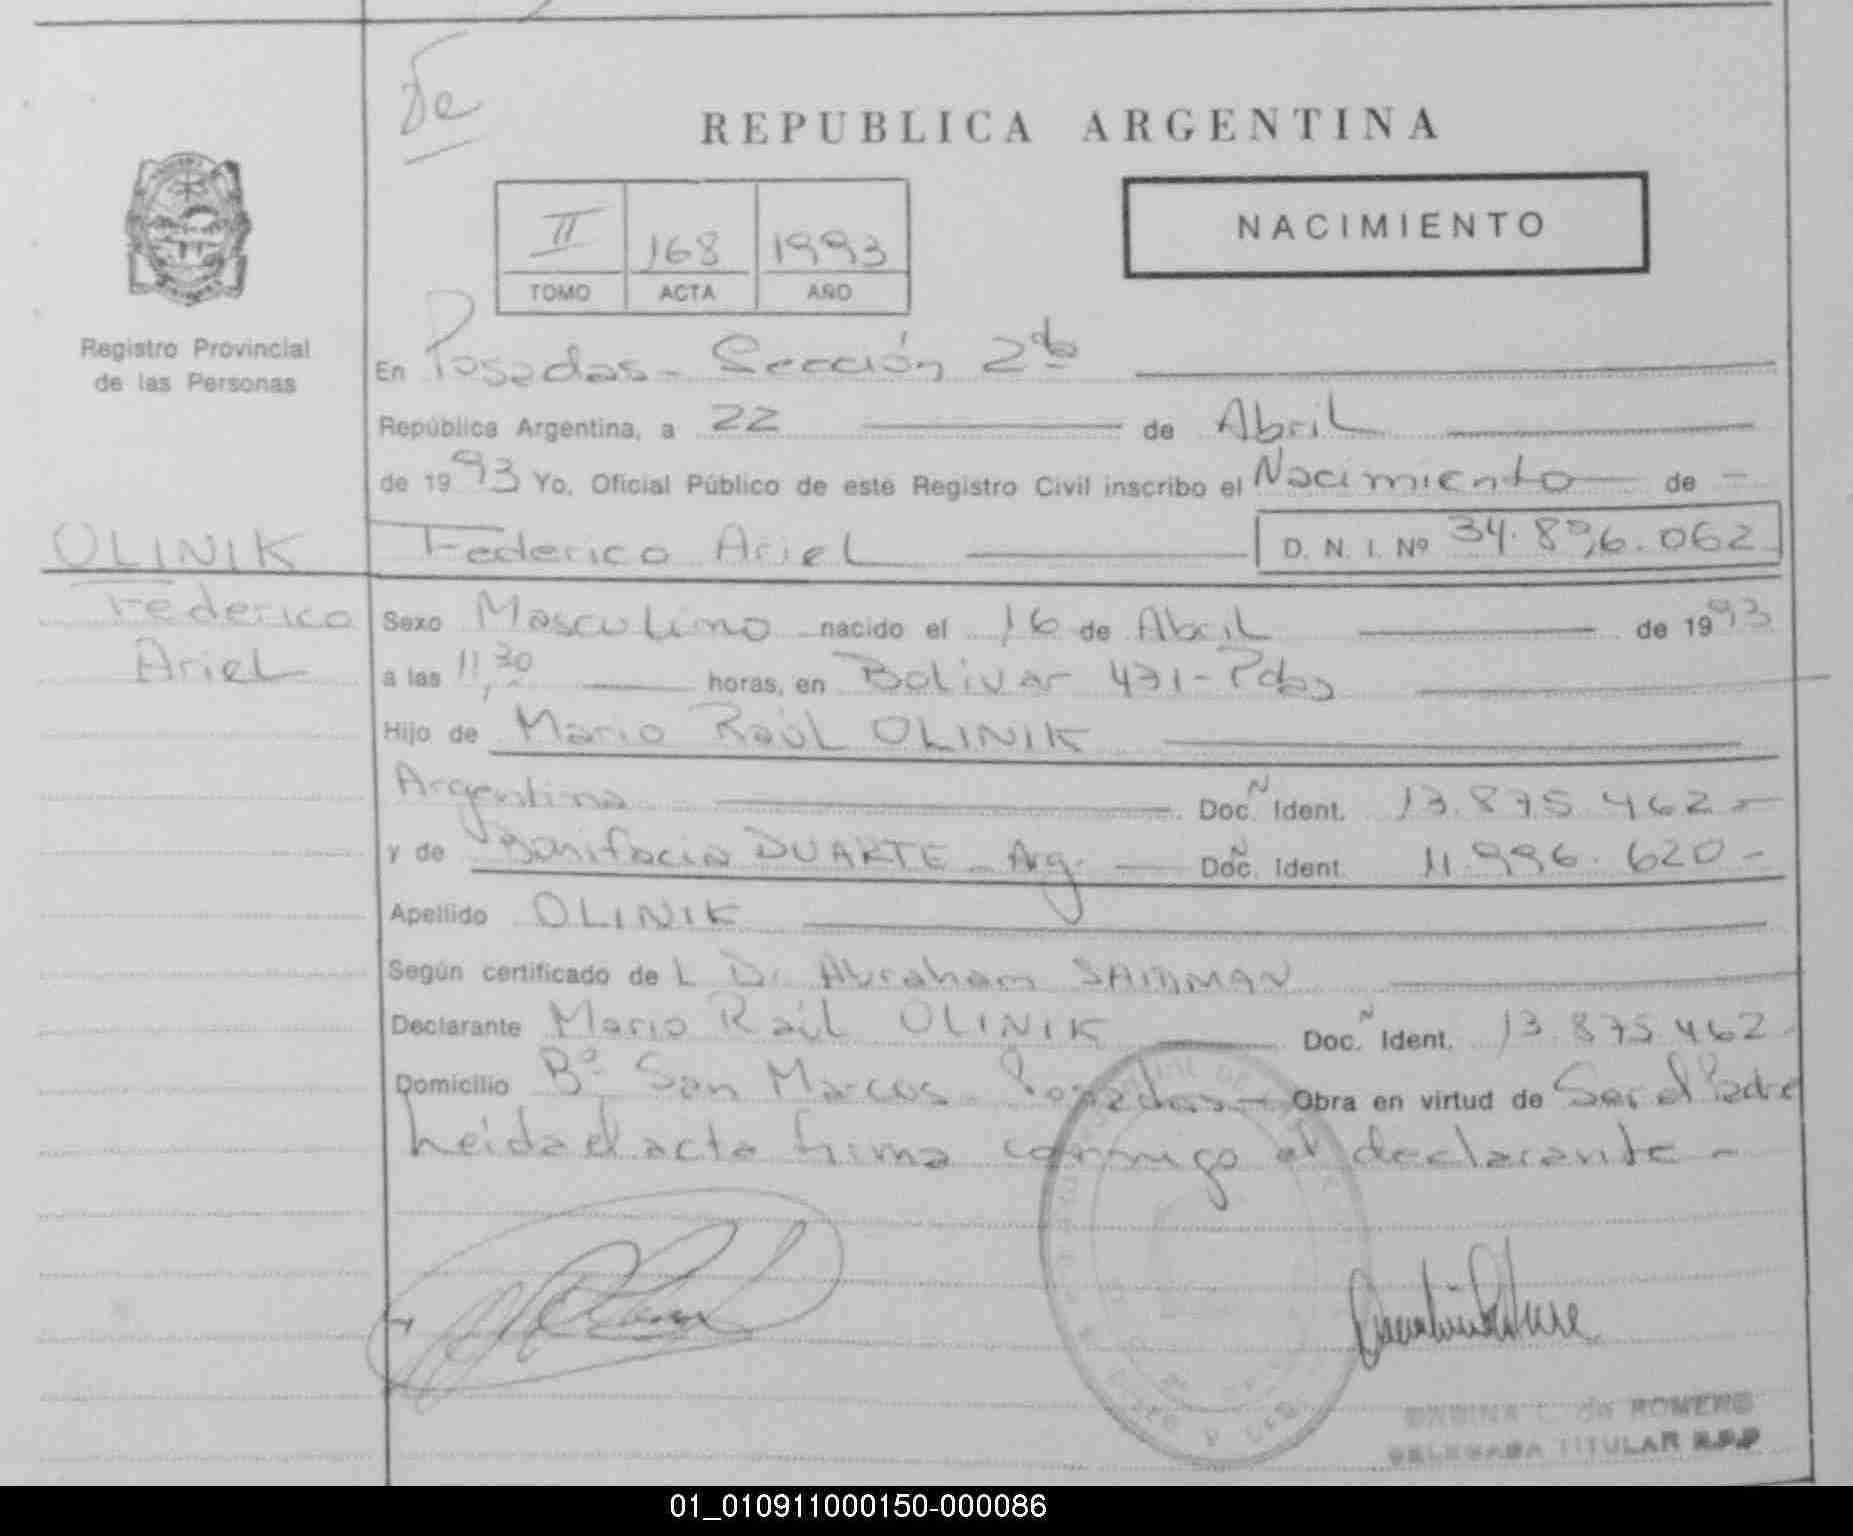 Te
REPUBLICA ARGENTINA
NACIMIENTO
II 168 1993
TOMO ACTA AÑO
Registro Provincial
de las Personas
En Posadas - Sección 2da
República Argentina, a 22 de Abril
de 1993 Yo, Oficial Público de este Registro Civil inscribo el Nacimiento de -
OLINIK Federico Ariel D. N. I. Nº 34.896.062
Federico
Ariel
Sexo Masculino nacido el 16 de Abril de 1993
a las 11,30 horas, en Bolivar 471 - Pdas
Hijo de Mario Raúl OLINIK
Argentina Doc. N Ident. 13.875.462 -
y de Bonifacia DUARTE - Arg. Doc. N Ident. 11.996.620 -
Apellido OLINIK
Según certificado de L Dr. Abraham
Declarante Mario Raúl OLINIK Doc. N Ident. 13.875.462 -
Domicilio Bº San Marcos - Posadas - Obra en virtud de Ser el Padre
Leida el acta firma conmigo el declarante -
C. de ROMERO
DELEGADA TITULAR R.P.P
01_010911000150-000086